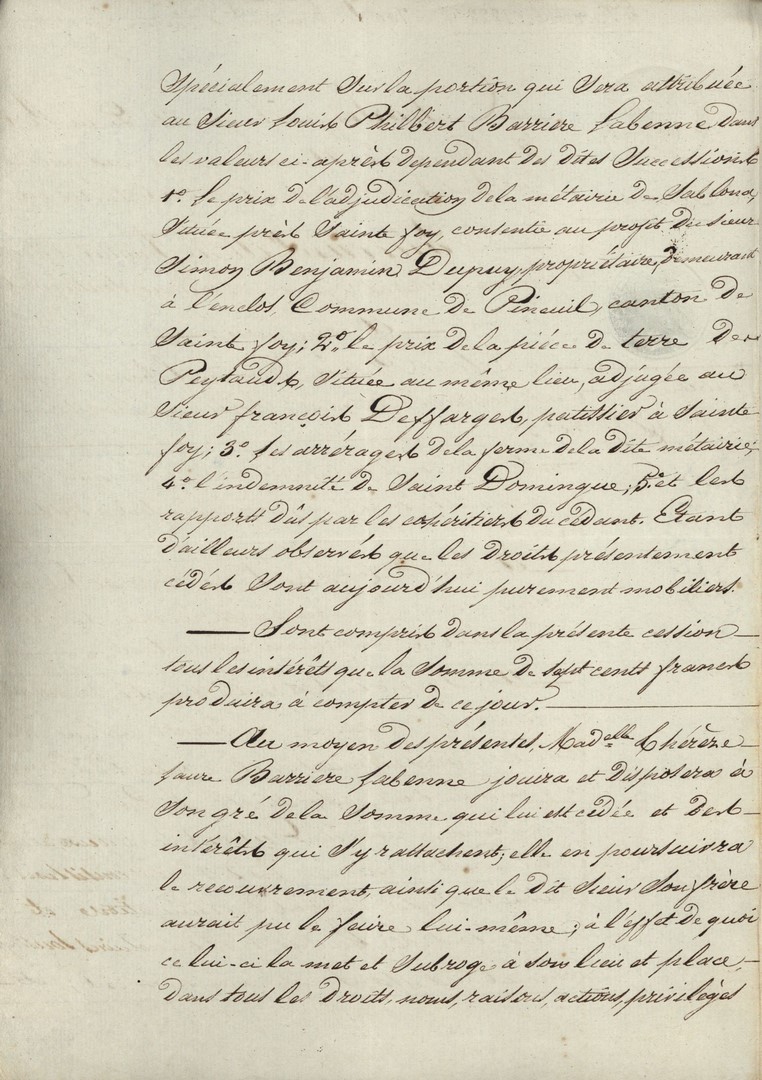 Spécialement sur la portion qui sera attribuée
au Sieur Louis Philbert Barriere Labenne dans
les valeurs ci-après dependant des dites Successions
1º. Le prix de l'adjudication de la métairie de Sablona,
Située près Sainte foy, consentie au profit du sieur
Simon Benjamin Dupuy, propriétaire, demeurant
à l'enclos, Commune de Pineuil, canton de
Sainte foy; 2º. le prix de la piéce de terre de
Peytauds, Située au même lieu, adjugée au
Sieur françois Deffarges, patissier à Sainte
foy; 3º. les arrérages de la ferme de la dite métairie;
4º. l'indemnité de Saint Domingue; 5º. et les
rapports dûs par les cohéritiers du cédant. Etant
d'ailleurs observés que les Droits présentement
cédés Sont aujourd'hui purement mobiliers.
Sont compris dans la présente cession
tous les intérêts que la Somme de Sept cents francs
produira à compter de ce jour.
Au moyen des présentes, Madelle Thérèze
Laure Barriere Labenne jouira et Disposera à
Son gré de la Somme qui lui est cédée et des
intérêts qui S'y rattachent; elle en poursuivra
le recouvrement, ainsi que le dit Sieur Son frère
aurait pu le faire lui-même; à l'effet de quoi
celui-ci la met et Subroge à son lieu et place,
Dans tous les Droits, noms, raisons, actions, privilèges